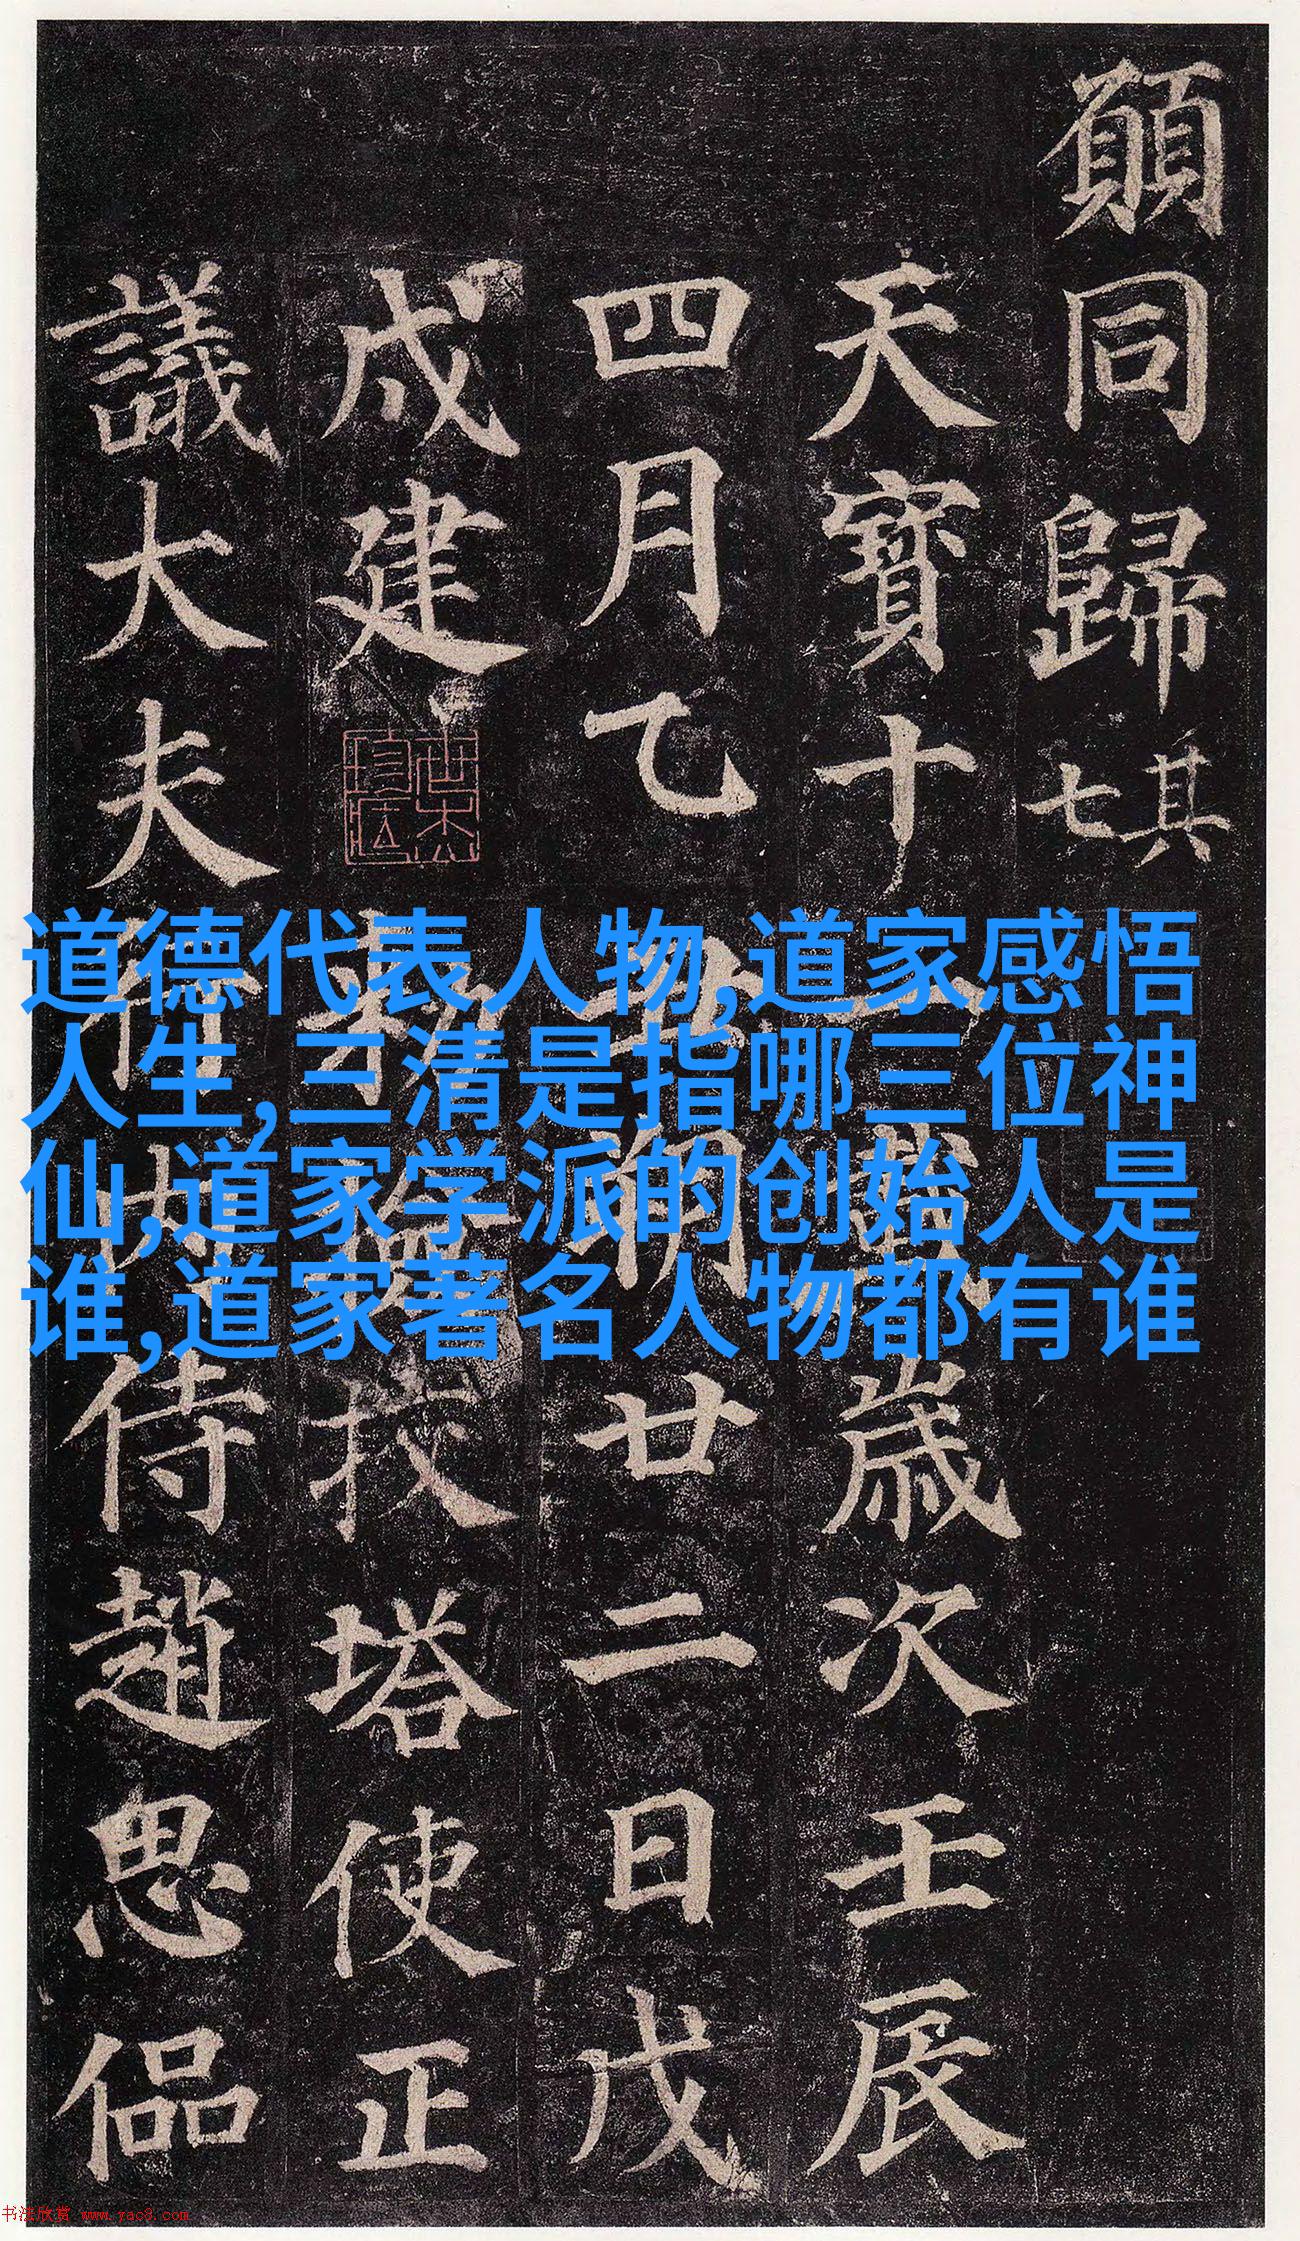 願同歸其七
天寶十一載歲次壬辰
四月乙丑朔廿二日戊
戌建勅檢挍塔使正
議大夫行內侍趙思偘
道德代表人物,道家感悟
人生,三清是指哪三位神
仙,道家学派的创始人是
谁,道家著名人物都有谁
书法欣赏 www.yac8.com